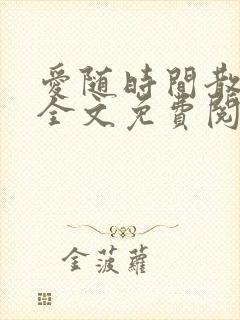 愛随時間散
全文免費閱
金菠蘿